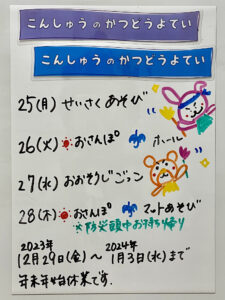 こんしゅうのかつどうよてい
こんしゅうのかつどうよてい
25(月) せいさくあそび
26(火) おさんぽ ホール
27(水) おおそうじごっこ
28(木) おさんぽ マットあそび
*防災頭巾お持ち帰り
2023年 2024年
12月29日(金)〜1月3日(水)まで
年末年始休業です。